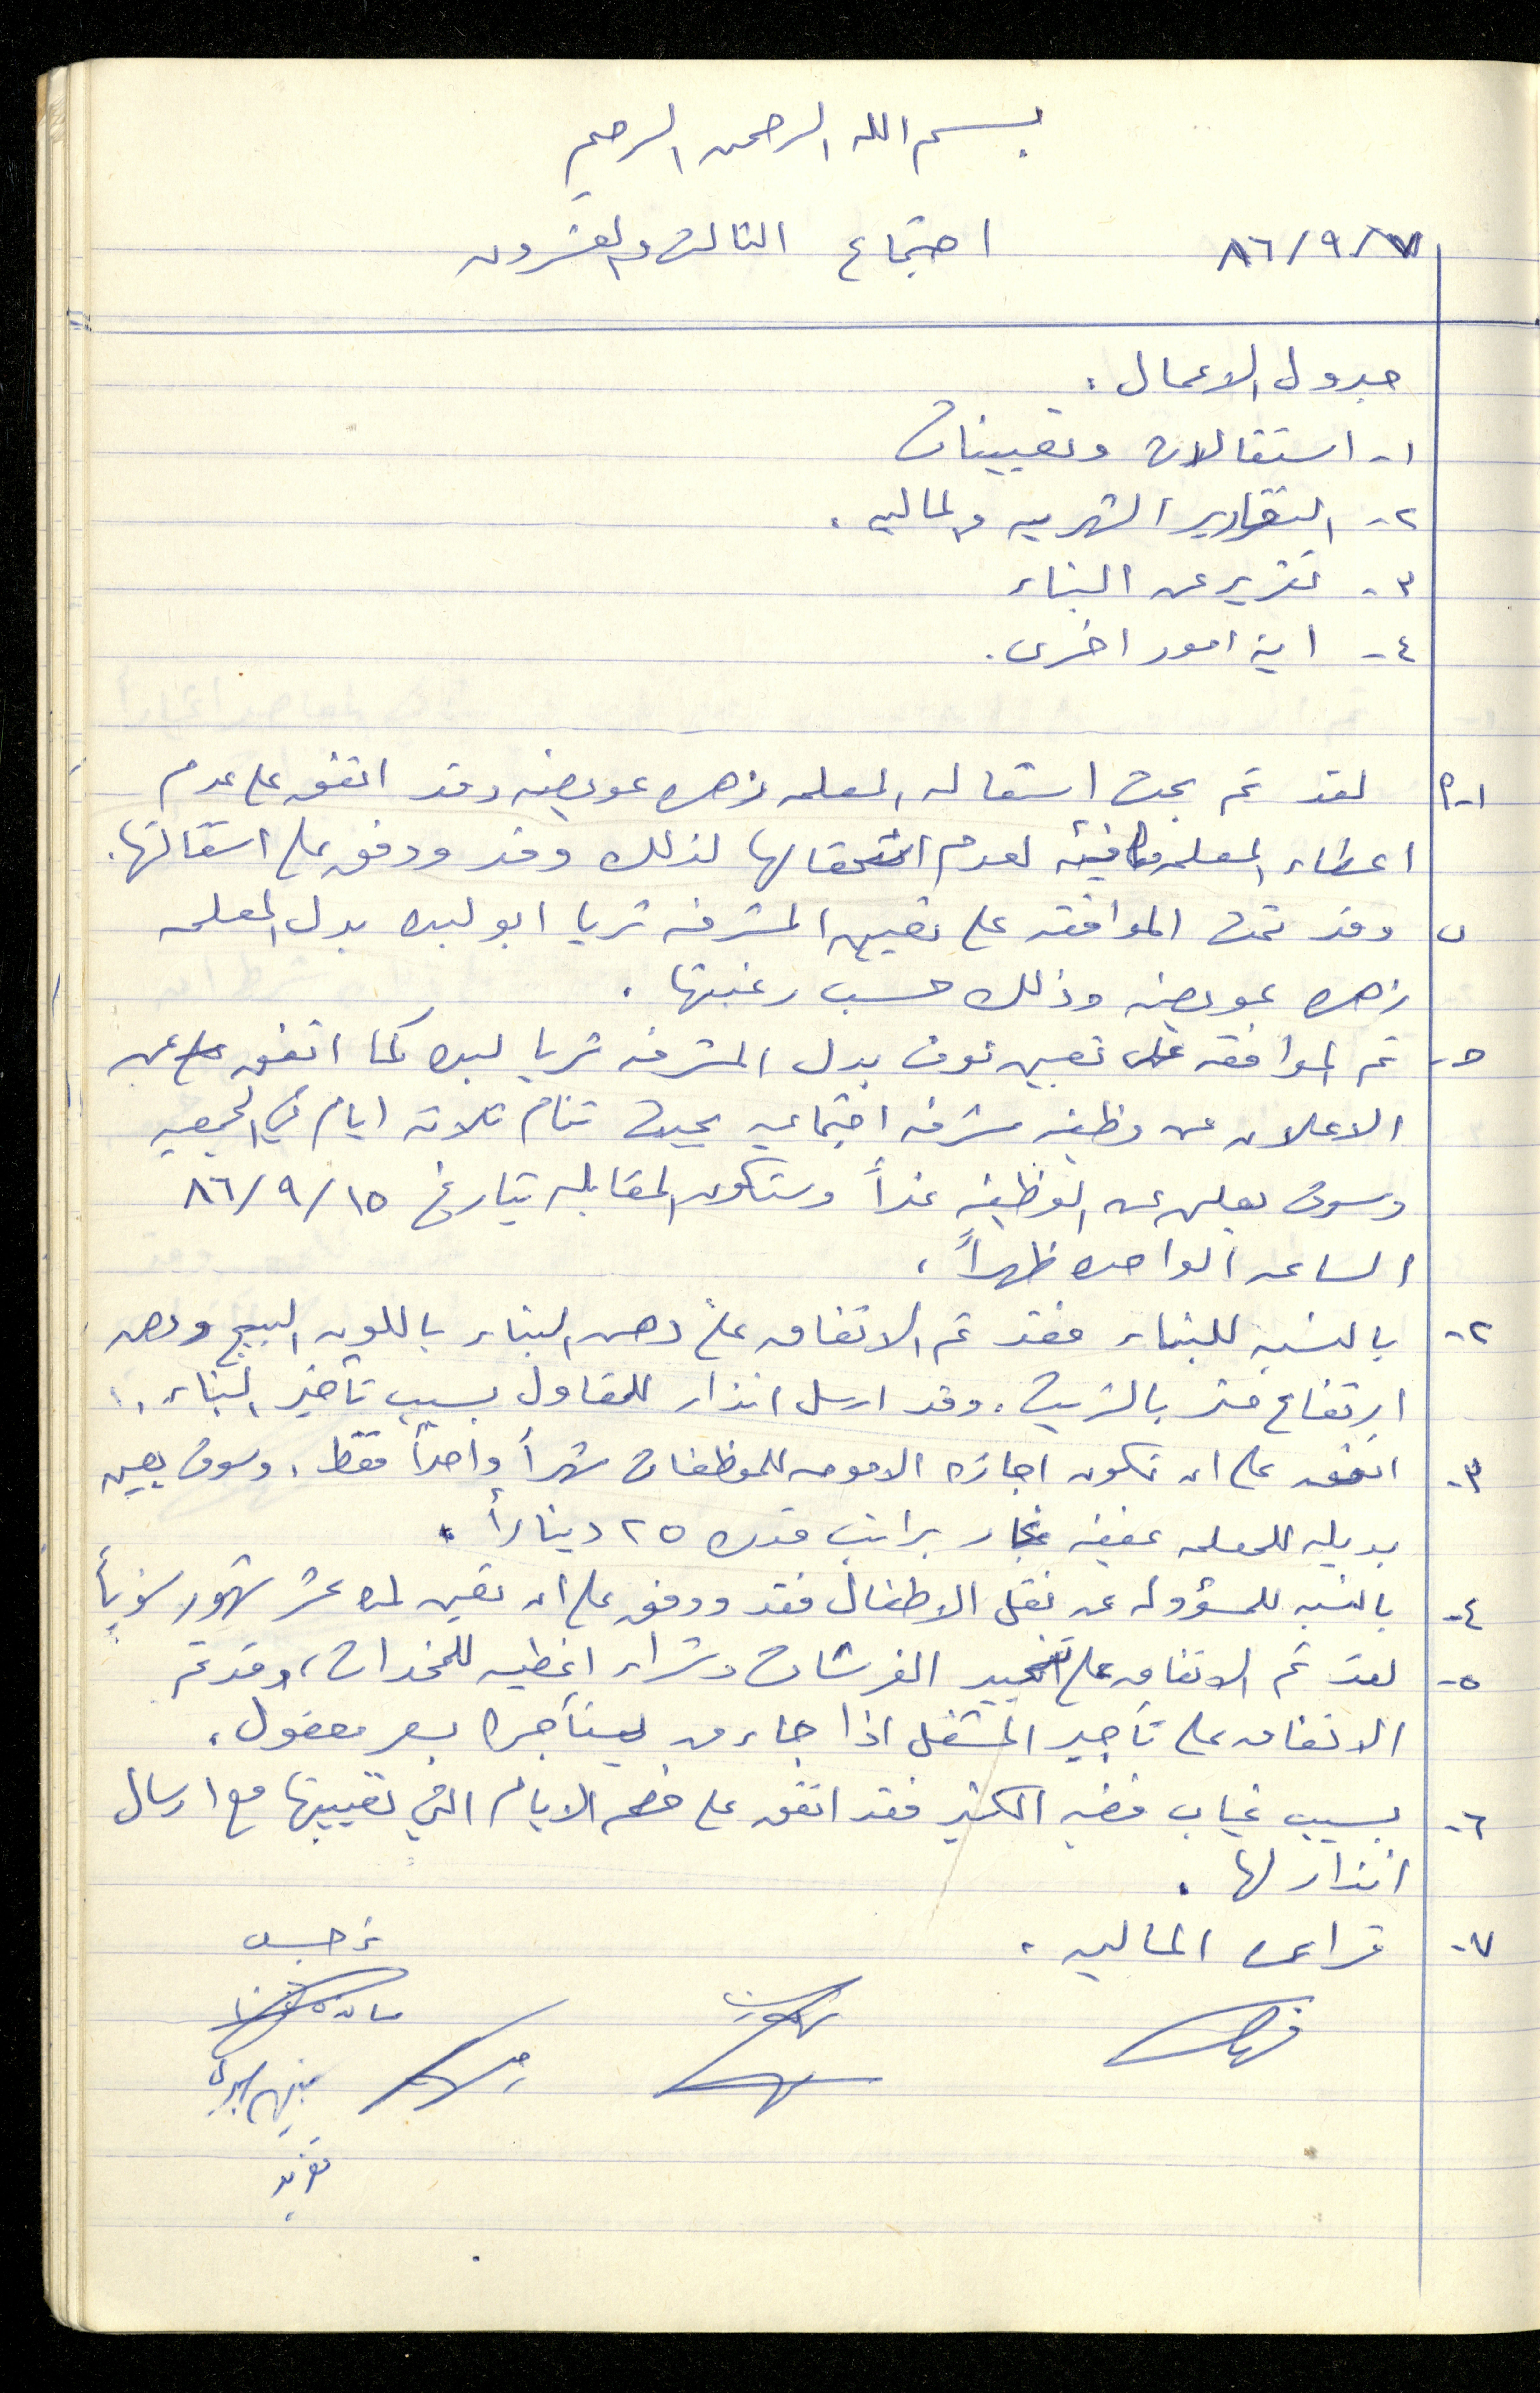 بسم الله الرحمن الرحيم
٨٦/٩/٧ اجتماع الثالث والعشرون
جدول الاعمال:
١- استقالات وتعيينات
٢- التقارير الشهريه والماليه.
٣- تقرير عن البناء
٤- اية امور اخرى.
١-أ لقد تم بحث استقاله المعلمه زهره عويضه وقد اتفق على عدم
اعطاء المعلمه مكافئه لعدم استحقالها لذلك وقد ووفق على استقالتها.
ب وقد تمت الموافقه على تعيين المشرفه ثريا ابو لبده بدل المعلمه
زهره عويضه وذلك حسب رغبتها.
ج- تم الموافقه على تعيين نوف بدل المشرفه ثريا لبده كما اتفق على
الاعلان عن وظيفه مشرفه اجتماعيه بحيث تنام ثلاثه ايام في الجمعيه
وسوف يعلن عن الوظيفه غداً وستكون المقابله بتاريخ ٨٦/٩/١٥
الساعه الواحده ظهراً.
٢- بالنسبه للبناء فقد تم الاتفاق على دهن البناء باللون البيج ودهن
ارتفاع متر بالزيت. وقد ارسل انذار للمقاول بسبب تأخير البناء.
٣- اتفق على ان تكون اجازه الامومه للموظفات شهراً واحداً فقط. وسوف يعين
بديله للمعلمه عفيفه نجار براتب قدره ٢٥ ديناراً.
٤- بالنسبه للمسؤوله عن نقل الاطفال فقد ووفق على ان تعين لمده عشر شهور سنوياً
٥- لقد تم الاتفاق على تنجيد الفرشات وشراء اغطيه للمخدات، وقد تم
الاتفاق على تأجير المشغل اذا جاء من يستأجره بسعر معقول.
٦- بسبب غياب فضيه الكثير فقد اتفق على خصم الايام التي تغيبتها مع ارسال
انذار لها.
٧- قراءه الماليه.
نرجس
تغريد